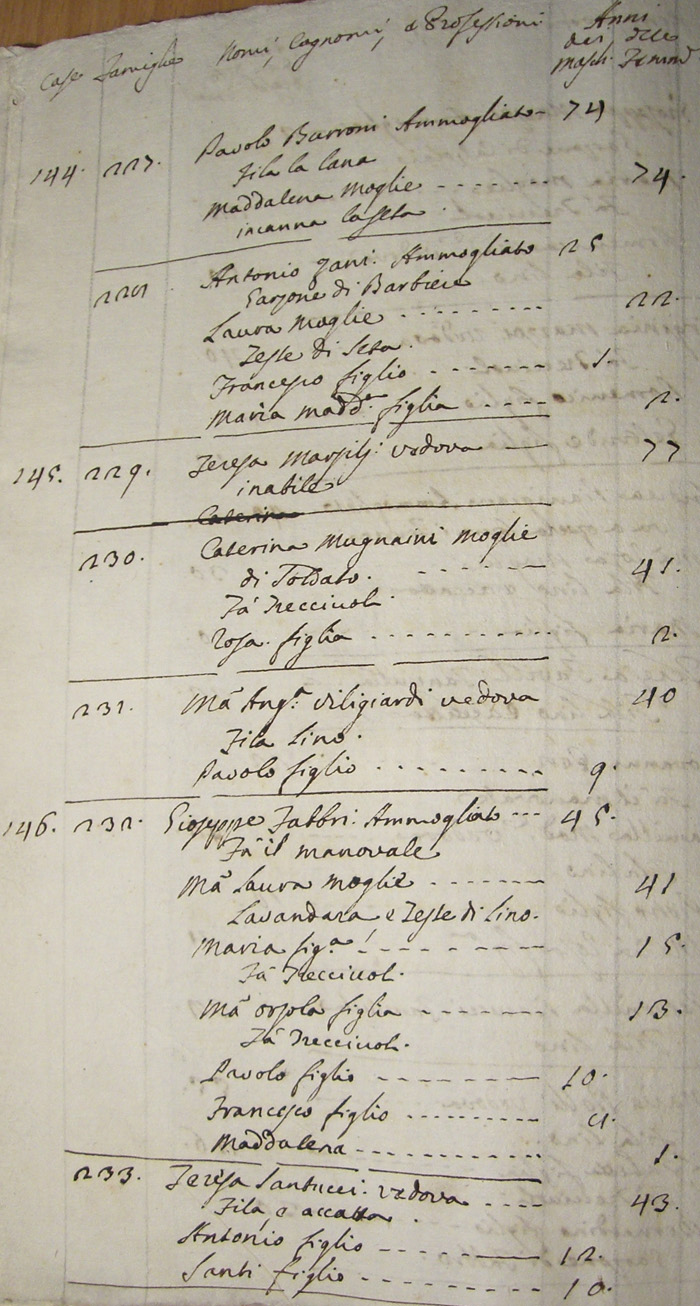 Case Famiglie Nomi, Cognomi, e Professioni Anni
dei delle
Masch. Femm
144. 227. Pavolo Burroni Ammogliato - 74
Fila la lana
Maddalena Moglie - - - - - - - 74.
incanna la seta .
228 Antonio Zani: Ammogliato 25
Garzone di Barbiere
Laura Moglie - - - - - - - - 22.
Tesse di Seta .
Francesco figlio - - - - - - - 1.
Maria Madd.a figlia - - - - 2.
145. 229. Teresa Marsilj: vedova — 77
inabile
Caterina
230. Caterina Mugnaini Moglie
di Soldato. - - - - - - - 41.
Fà Trecciuoli.
Rosa figlia - - - - - - - - - - 2.
231. Mª Ang.ª Viligiardi vedova 40
Fila Lino.
Pavolo figlio - - - - - - - - - 9.
146. 232. Gioseppe Fabbri: Ammogliato - - - 45.
Fà il manovale
Mª Laura Moglie - - - - - - - 41
Lavandara e Tesse di Lino.
Maria fig.a - - - - - - - - 15
Fà Trecciuoli.
Mª Orsola figlia - - - - - - - 13.
Fà Trecciuoli.
Pavolo figlio - - - - - - - - - 10.
Francesco figlio - - - - - - - -
Maddalena - - - - - - - - - - - 1.
233. Teresa Santucci: vedova - - - - 43.
Fila, e accatta .
Antonio figlio - - - - - - - - 12.
Santi figlio - - - - - - - - - 10.